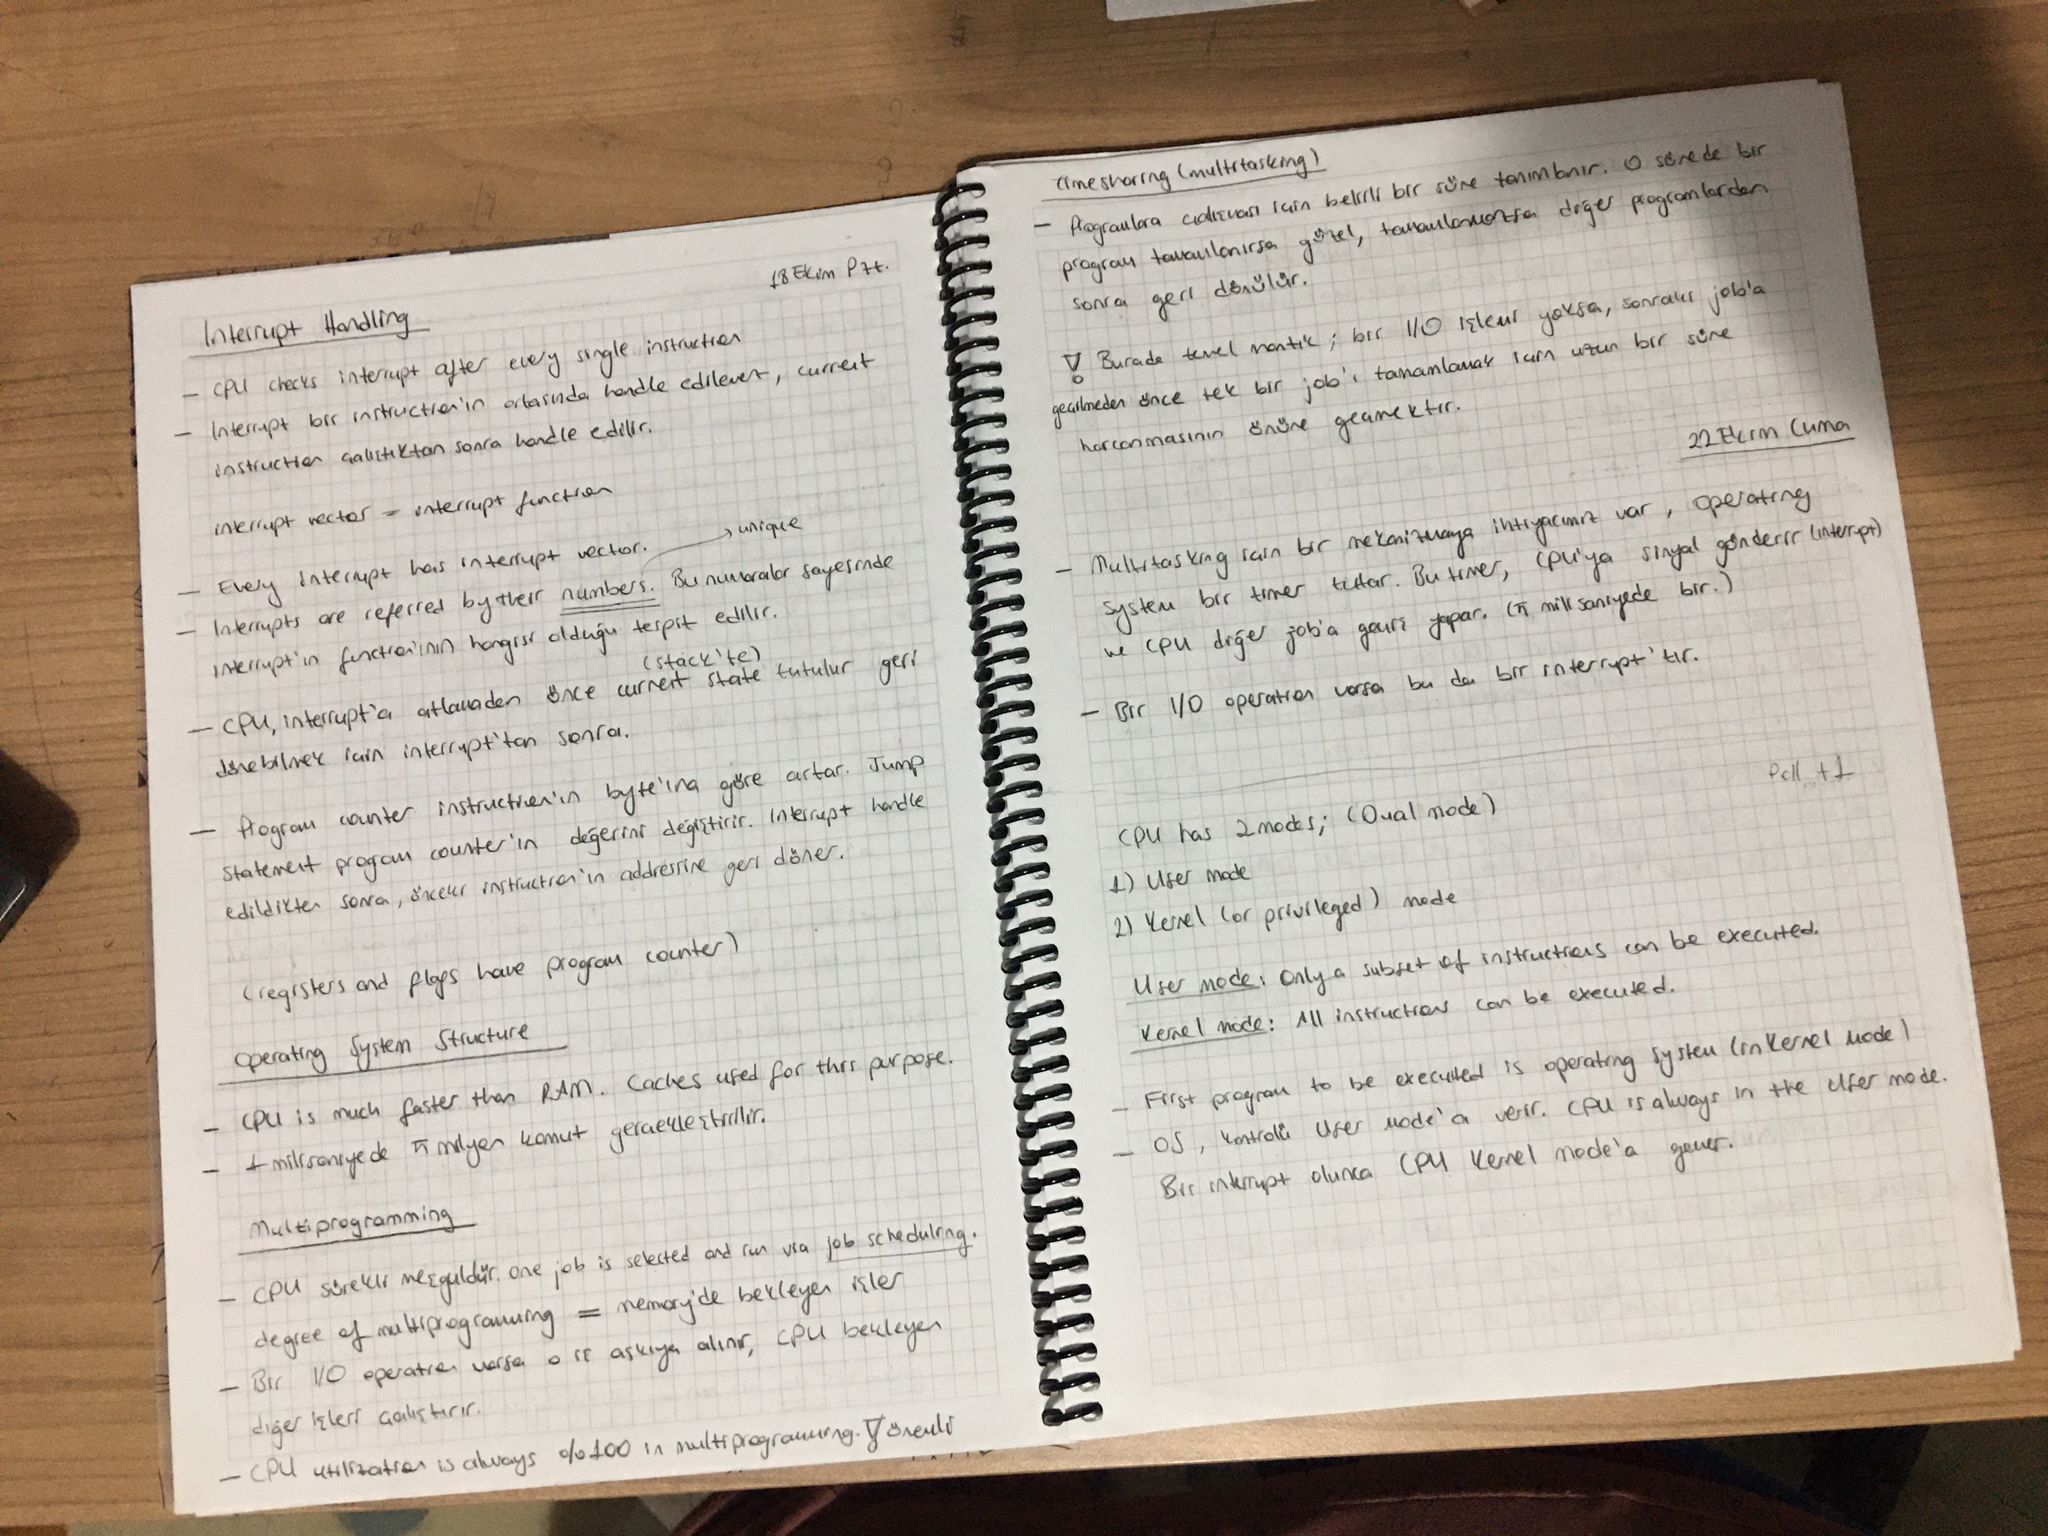 18 Ekim Pzt.
Interrupt Handling
- CPU checks interrupt after every single instruction
- Interrupt bir instruction'ın ortasında handle edilemez, current
instruction çalıştıktan sonra handle edilir.
interrupt vector = interrupt function
- Every interrupt has interrupt vector. → unique
- Interrupts are referred by their numbers. Bu numaralar sayesinde
interrupt'ın function'ının hangisi olduğu tespit edilir.
(stack'te)
- CPU, interrupt'a atlamadan önce current state tutulur geri
dönebilmek için interrupt'tan sonra.
- Program counter instruction'ın byte'ına göre artar. Jump
statement program counter'ın değerini değiştirir. Interrupt handle
edildikten sonra, önceki instruction'ın addressine geri döner.
(registers and flags have program counter)
Operating System Structure
- CPU is much faster than RAM. Caches used for this purpose.
- 1 milisaniyede milyon komut gerçekleştirilir.
Multiprogramming
- CPU sürekli meşguldür. One job is selected and run via job scheduling.
degree of multiprogramming = memory'de bekleyen işler
- Bir I/O operation varsa o iş askıya alınır, CPU bekleyen
diğer işleri çalıştırır.
- CPU utilization is always %100 in multiprogramming. ! önemli
Timesharing (multitasking)
- Programlara çalışması için belirli bir süre tanımlanır. O sürede bir
program tamamlanırsa güzel, tamamlanmazsa diğer programlardan
sonra geri dönülür.
! Burada temel mantık; bir I/O işlemi yoksa, sonraki job'a
geçilmeden önce tek bir job'ı tamamlamak için uzun bir süre
harcanmasının önüne geçmektir.
22 Ekim Cuma
- Multitasking için bir mekanizmaya ihtiyacımız var, operating
system bir timer tutar. Bu timer, CPU'ya sinyal gönderir (interrupt)
ve CPU diğer job'a geçiş yapar. ( milisaniyede bir.)
- Bir I/O operation varsa bu da bir interrupt'tır.
Poll +1
CPU has 2 modes; (Dual mode)
1) User mode
2) Kernel (or privileged) mode
User mode: Only a subset of instructions can be executed.
Kernel mode: All instructions can be executed.
- First program to be executed is operating system (in Kernel Mode)
- OS, kontrolü User mode'a verir. CPU is always in the User mode.
Bir interrupt olunca CPU Kernel mode'a geçer.